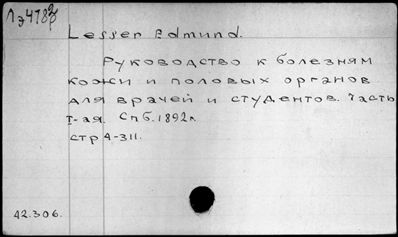 Lesser Edmund.
Руководство к болезням
кожи и половых органов
для врачей и студентов. Часть
I-ая. Спб. 1892г.
стр 4-311.
42.306.